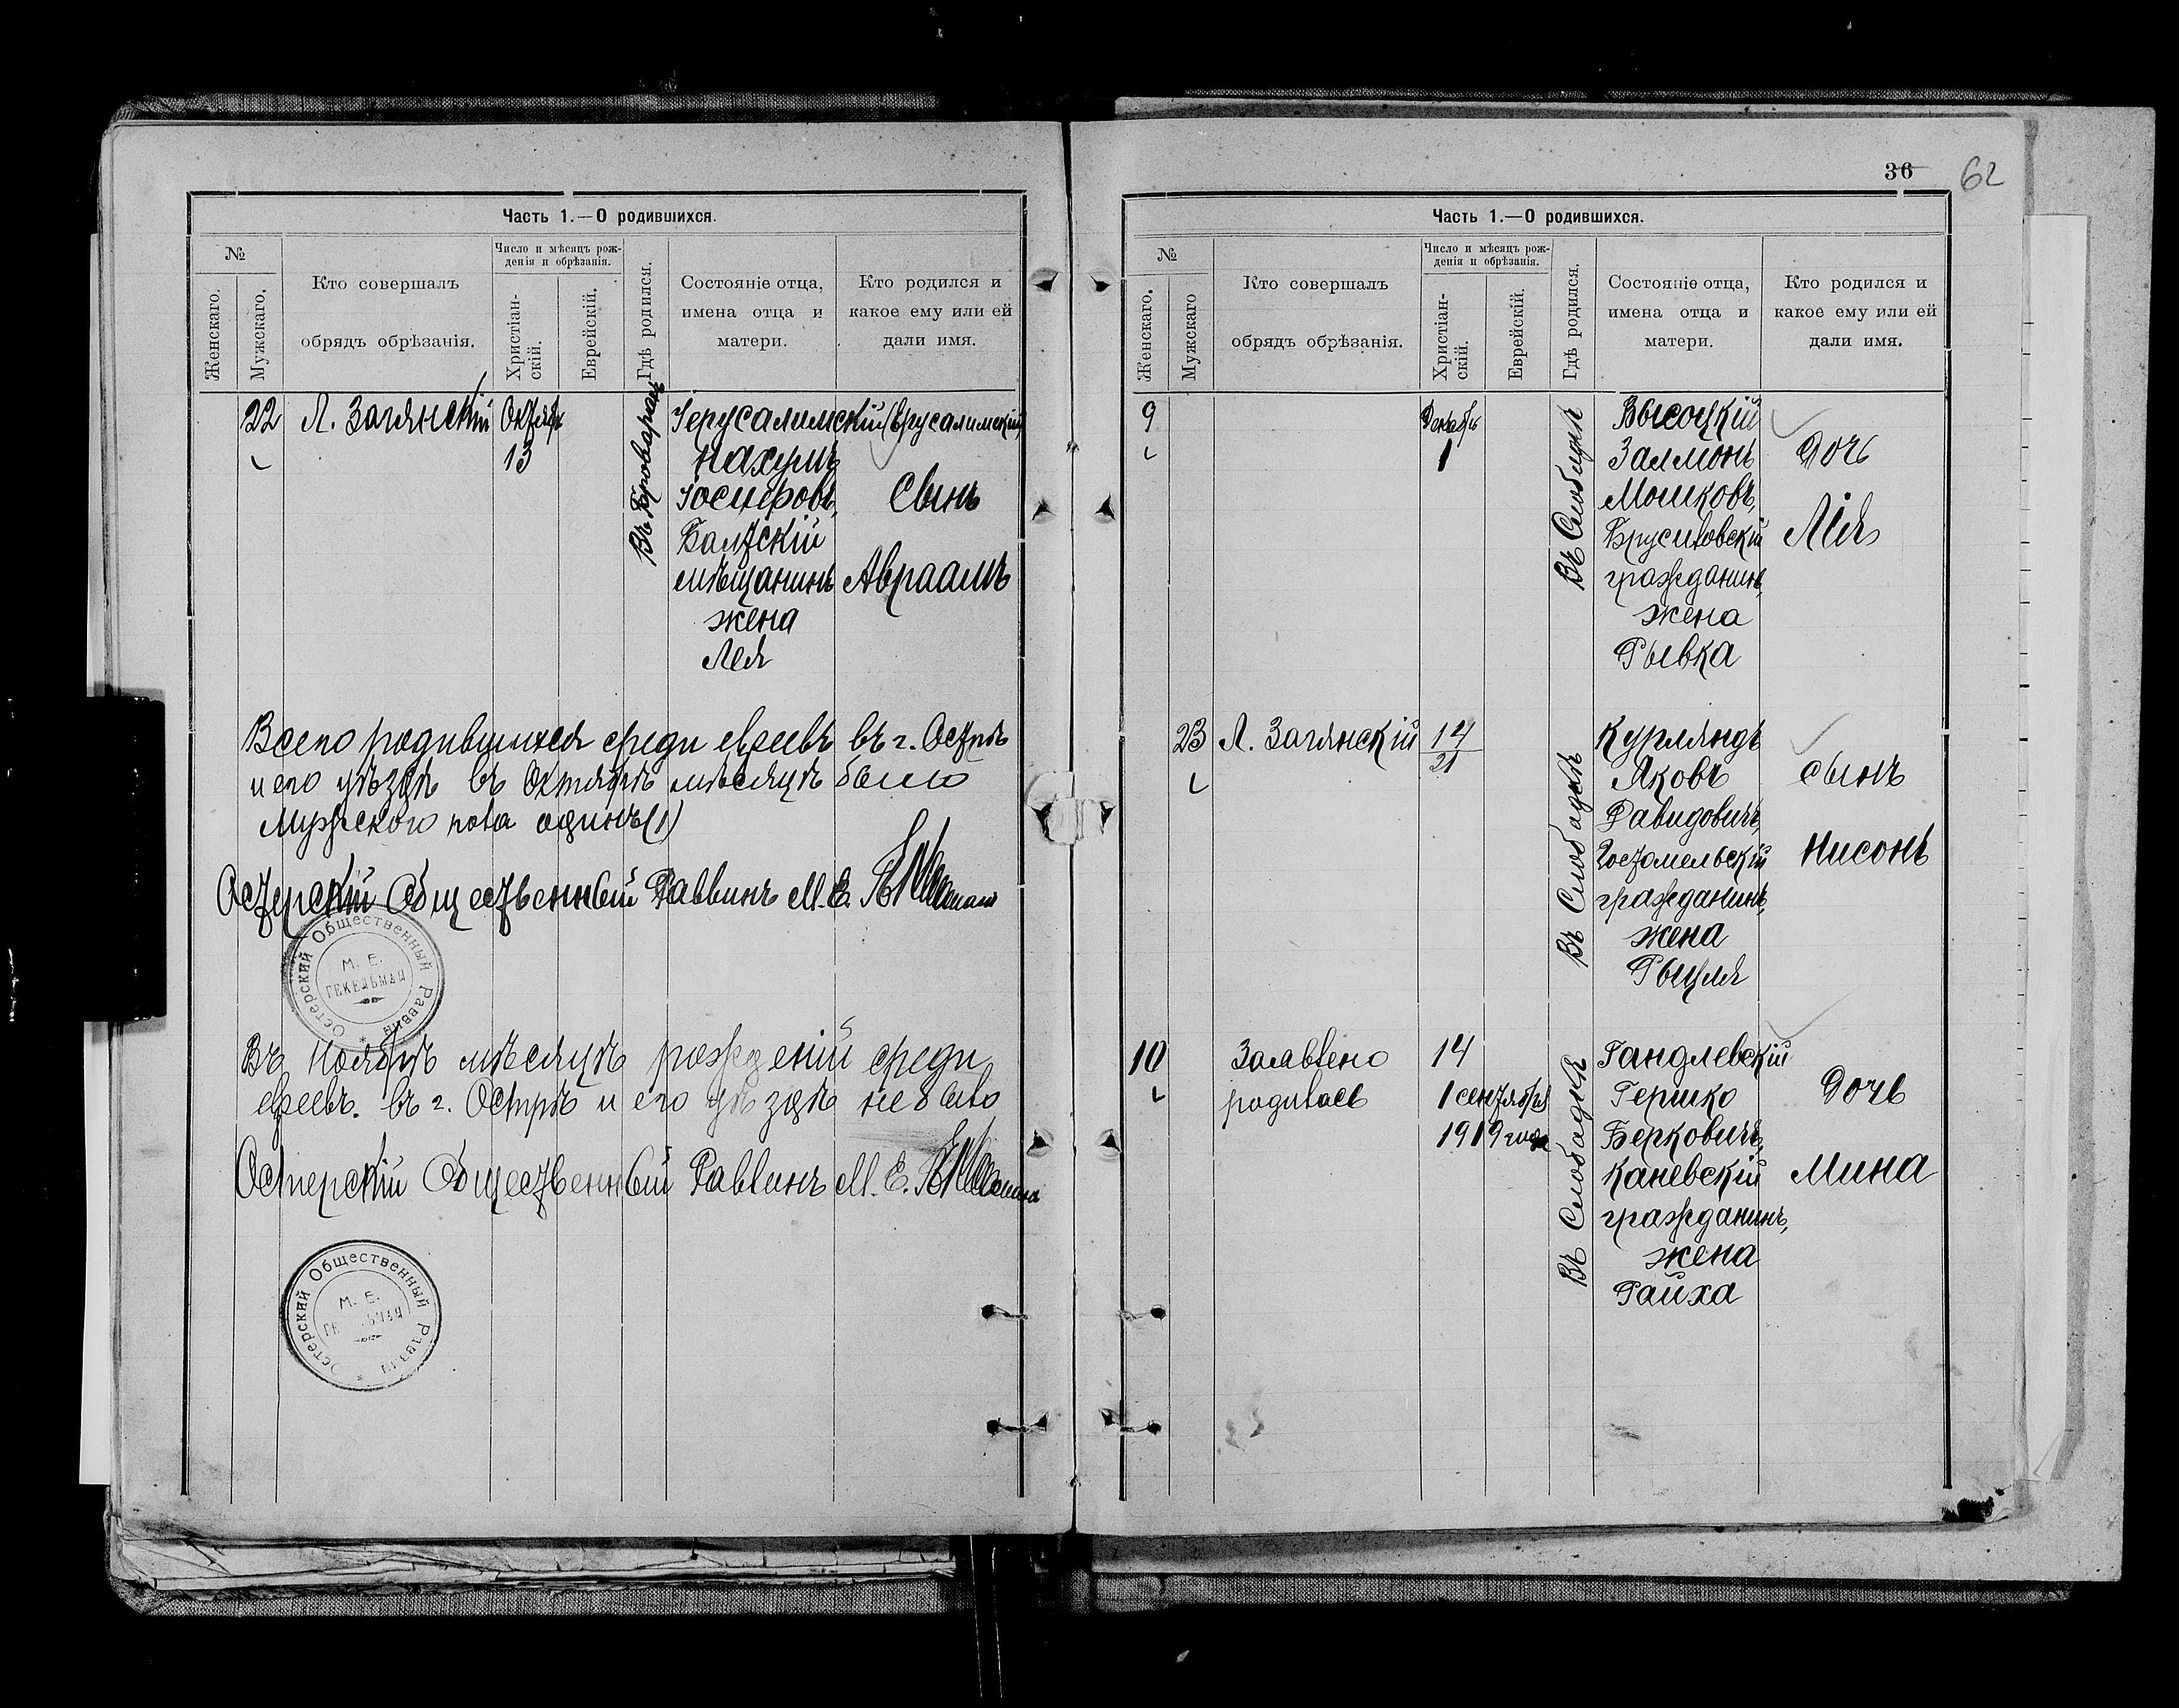 Часть 1.—О родившихся.
№
Женскаго.
Мужскаго.
Кто совершалъ
обрядъ обрѣзанія.
Число и мѣсяцъ рож-
денія и обрѣзанія.
Христіан-
скій.
Еврейскій.
Гдѣ родился.
Состояніе отца,
имена отца и
матери.
Кто родился и
какое ему или ей
дали имя.
22
Л. Загянскій
Октябр
13
Въ Броварахъ
Іерусалимскій (Ерусалимскій)
Нахумъ
Іосифовъ,
Балтскій
мѣщанинъ
жена
Лея
Сынъ
Авраамъ
Всего родившихся среди евреевъ въ г. Острѣ
и его уѣздѣ въ Октябрѣ мѣсяцѣ было
Мужского пола одинъ (1)
Остерскій Общественный Раввинъ М. Е.
Остерский Общественный Раввин
М. Е.
ГЕКЕЛЬМАН
Въ Ноябрѣ мѣсяцѣ рожденій среди
евреевъ въ г. Острѣ и его уѣздѣ не было
Остерскій Общественный Раввинъ М. Е.
Остерский Общественный Раввин
М. Е.
36
62
Часть 1.—О родившихся.
№
Женскаго.
Мужскаго
Кто совершалъ
обрядъ обрѣзанія.
Число и мѣсяцъ рож-
денія и обрѣзанія.
Христіан-
скій.
Еврейскій.
Гдѣ родился.
Состояніе отца,
имена отца и
матери.
Кто родился и
какое ему или ей
дали имя.
9
Декабрь
1
Въ Слободкѣ
Высоцкій
Залмонъ
Мошковъ,
Брусиловскій
гражданинъ,
жена
Рывка
Дочь
Лія
23
Л. Загянскій
14
21
Въ Слободкѣ
Курляндъ
Яковъ
Давидовичъ,
Гостомельскій
гражданинъ,
жена
Рыцля
сынъ
Нисонъ
10
Заявлено
14
родилась
1 сентября
1919 года
Въ Слободкѣ
Гандлевскій
Гершко
Берковичъ,
Каневскій
гражданинъ,
жена
Райха
Дочь
Мина